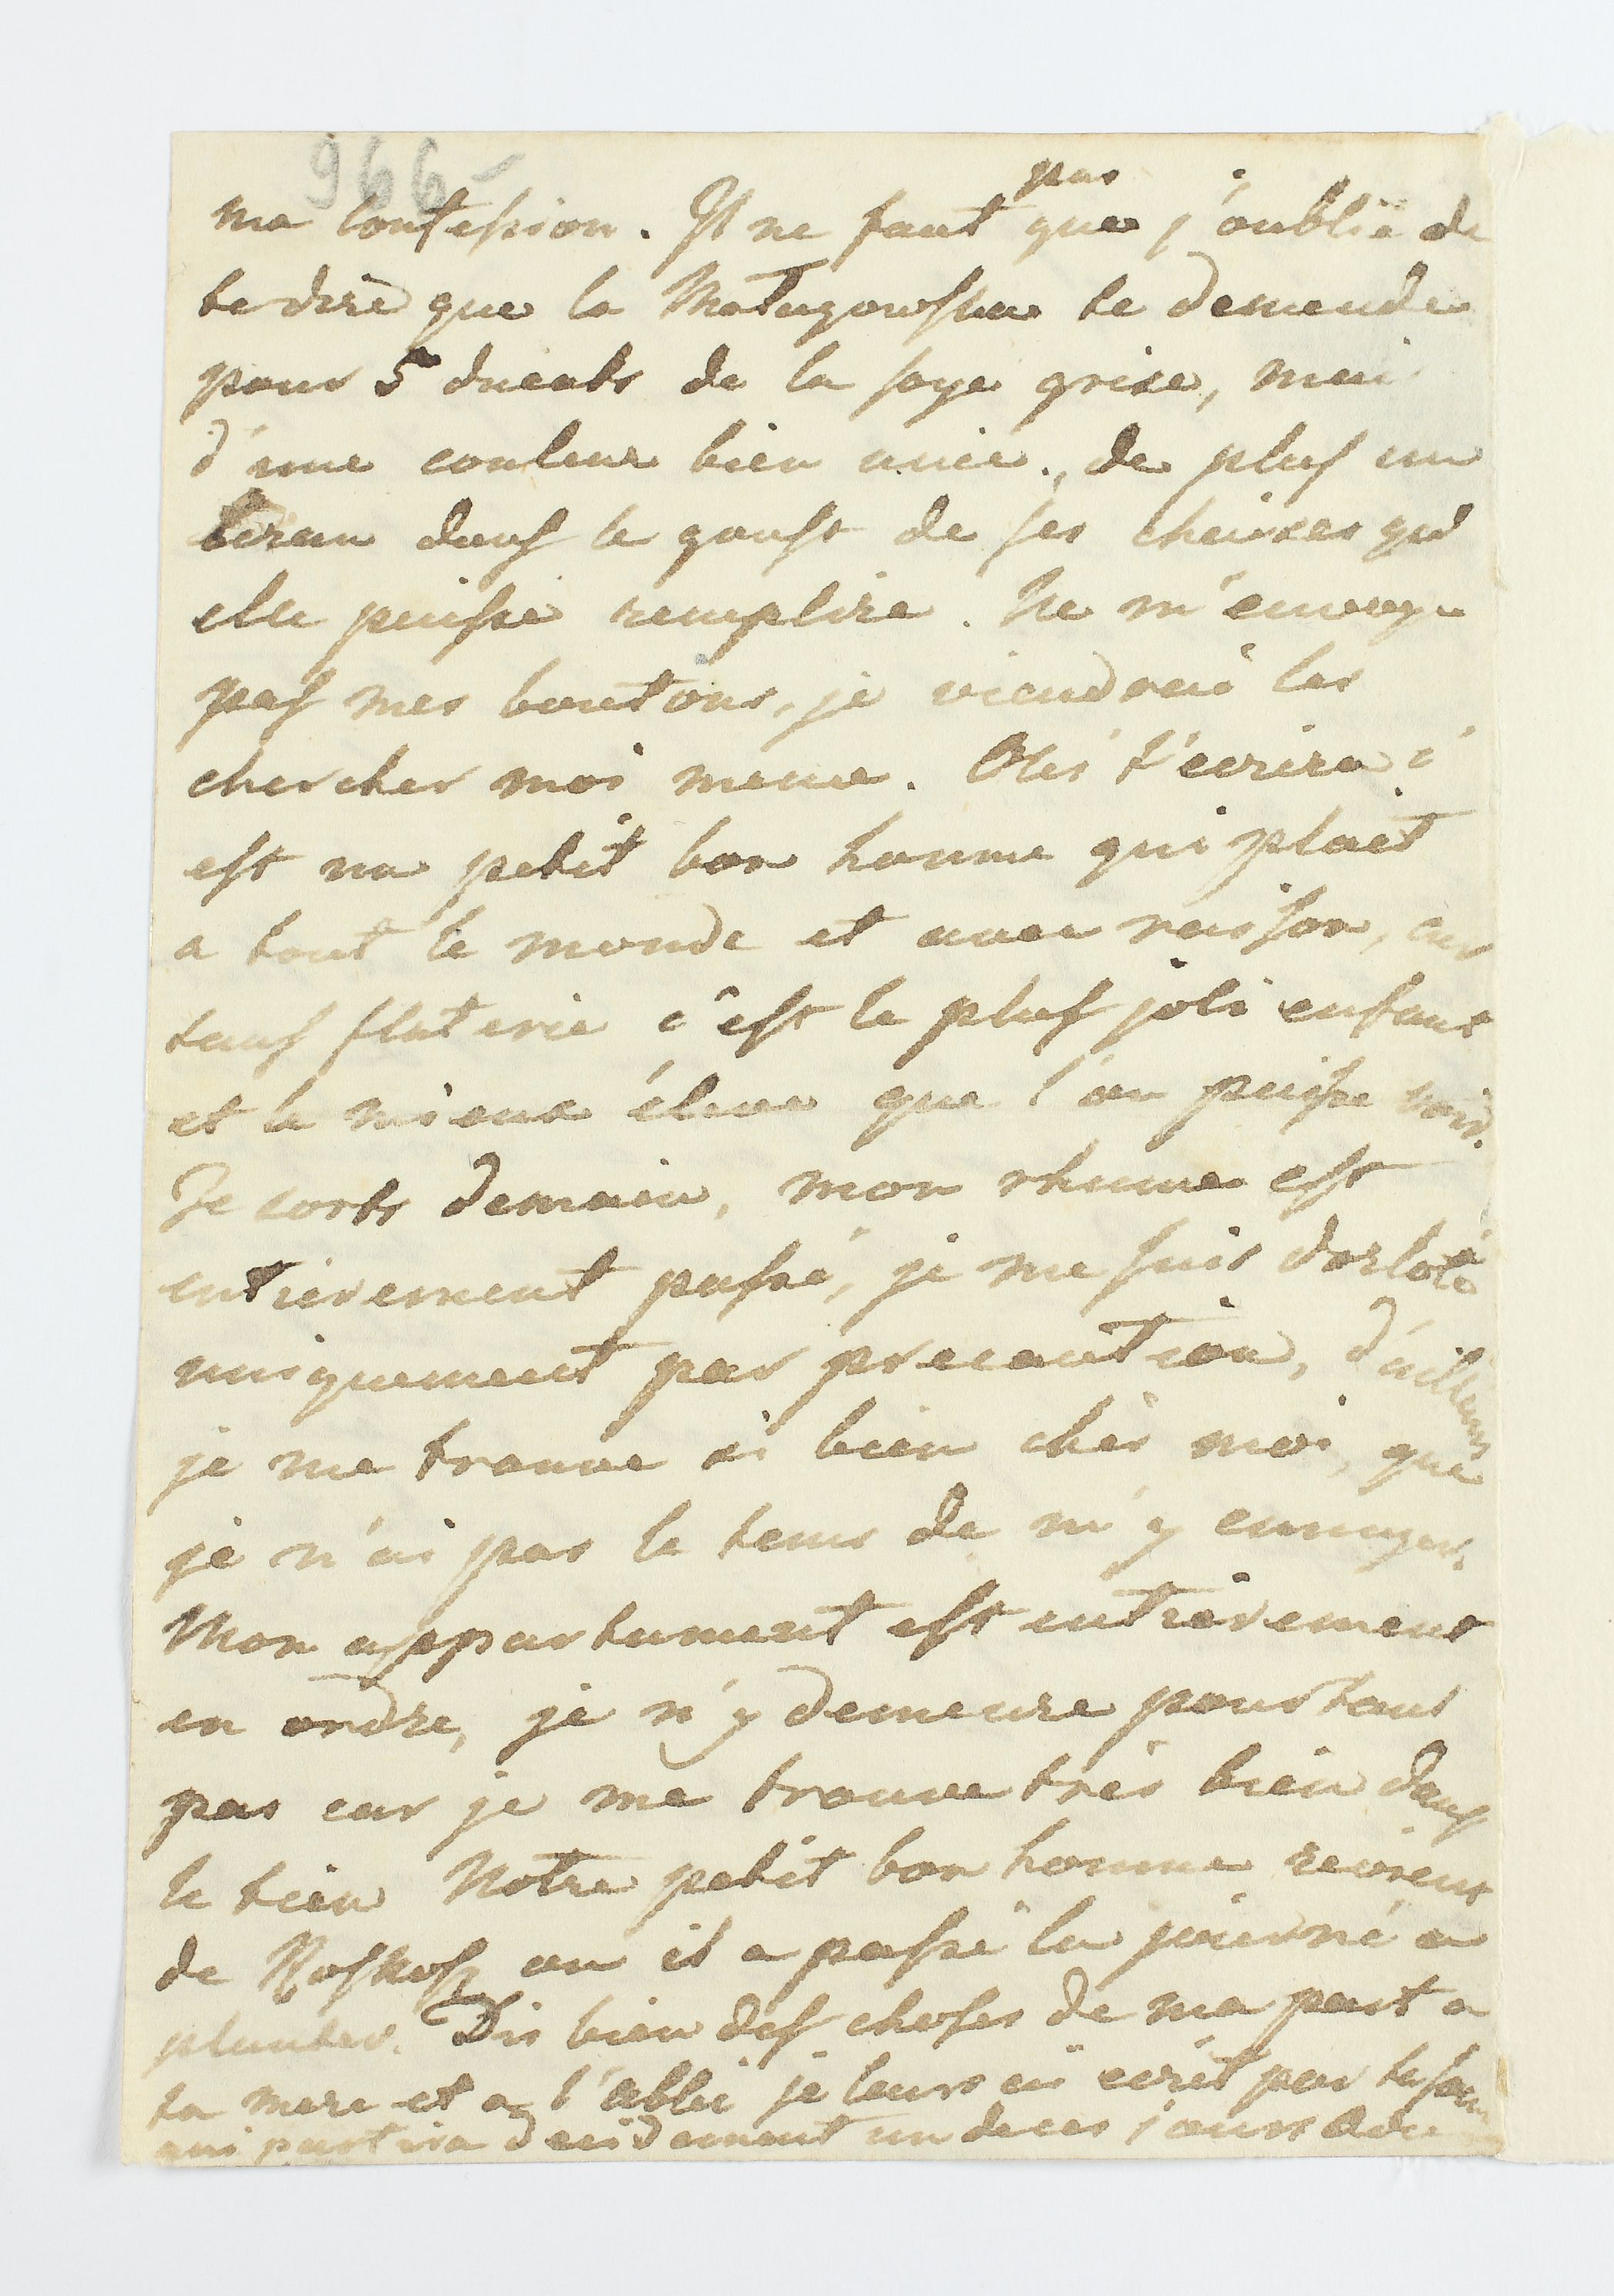 966-
pas
ma confession. Il ne faut que j'oublie de
te dire que la Matugowska te demende
pour 5 ducats de la soye grise, mais
d'une couleur bien unie., de plus un
écran dans le goust de ses cheises qu'
elle puisse remplire. Ne m'envoye
pas mes boutons, je viendrai les
chercher moi meme. Olés t'ecrira c'
est un petit bon homme qui plait
a tout le monde et avec raisson, car
sans flaterie c'est le plus joli enfant
et le mieux éleve que l'on puisse voir.
Je sorts demain, mon rhume est
entierement passé, je me suis dorloté
uniquement par precaution, d'ailleurs
je me trouve si bien chés moi, que
je n'ai pas le tems de m'y ennuyer.
Mon appartument est entierement
en ordre, je n'y demeure pourtant
pas car je me trouve trés bien dans
le tien Notre petit bon homme revient
de Roskosz ou il a passé la journé a
planter. Dis bien des choses de ma part a
ta mere et a l'abbé je leurs ai ecrit par
qui partira decidement un de ces jours Adieu